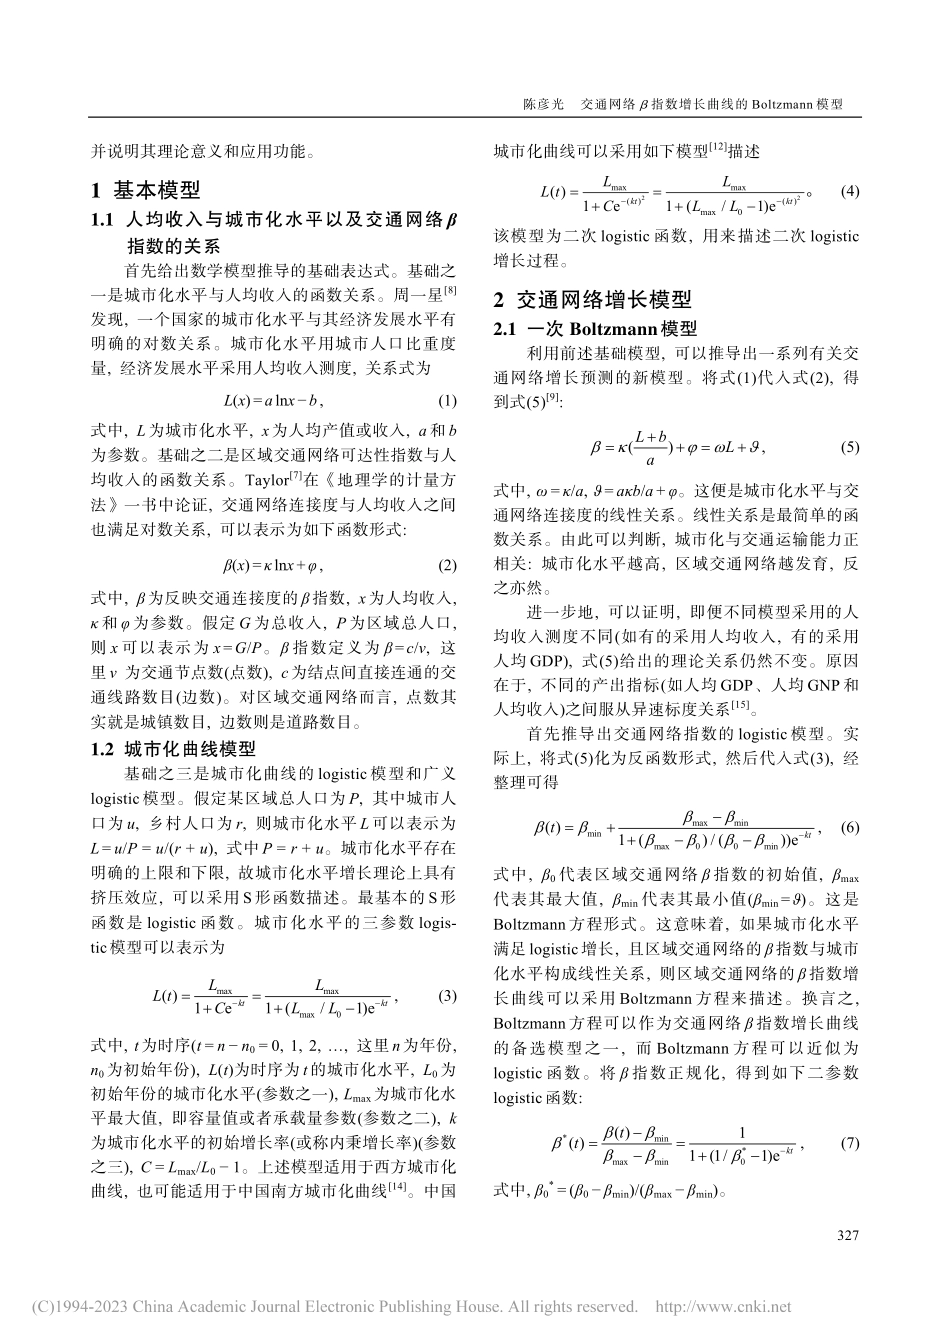 陈彦光 交通网络 β 指数增长曲线的 Boltzmann 模型
并说明其理论意义和应用功能。
1 基本模型
1.1 人均收入与城市化水平以及交通网络 β
指数的关系
首先给出数学模型推导的基础表达式。基础之
一是城市化水平与人均收入的函数关系。周一星[8]
发现, 一个国家的城市化水平与其经济发展水平有
明确的对数关系。城市化水平用城市人口比重度
量, 经济发展水平采用人均收入测度, 关系式为
L(x) = a lnx − b , (1)
式中, L 为城市化水平, x 为人均产值或收入, a 和 b
为参数。基础之二是区域交通网络可达性指数与人
均收入的函数关系。Taylor[7]在《地理学的计量方
法》一书中论证, 交通网络连接度与人均收入之间
也满足对数关系, 可以表示为如下函数形式:
β(x) = κ lnx + φ , (2)
式中, β 为反映交通连接度的 β 指数, x 为人均收入,
κ 和 φ 为参数。假定 G 为总收入, P 为区域总人口,
则 x 可以表示为 x = G/P。β 指数定义为 β = c/v, 这
里 v 为交通节点数(点数), c 为结点间直接连通的交
通线路数目(边数)。对区域交通网络而言, 点数其
实就是城镇数目, 边数则是道路数目。
1.2 城市化曲线模型
基础之三是城市化曲线的 logistic 模型和广义
logistic 模型。假定某区域总人口为 P, 其中城市人
口为 u, 乡村人口为 r, 则城市化水平 L 可以表示为
L = u/P = u/(r + u), 式中 P = r + u。城市化水平存在
明确的上限和下限, 故城市化水平增长理论上具有
挤压效应, 可以采用 S 形函数描述。最基本的 S 形
函数是 logistic 函数。城市化水平的三参数 logis-
tic 模型可以表示为
L(t) = Lmax / (1 + Ce^(−kt)) = Lmax / (1 + (Lmax / L0 − 1)e^(−kt)) , (3)
式中, t 为时序(t = n − n0 = 0, 1, 2, …, 这里 n 为年份,
n0 为初始年份), L(t)为时序为 t 的城市化水平, L0 为
初始年份的城市化水平(参数之一), Lmax 为城市化水
平最大值, 即容量值或者承载量参数(参数之二), k
为城市化水平的初始增长率(或称内秉增长率)(参数
之三), C = Lmax/L0 − 1。上述模型适用于西方城市化
曲线, 也可能适用于中国南方城市化曲线[14]。中国
城市化曲线可以采用如下模型[12]描述
L(t) = Lmax / (1 + Ce^(−(kt)^2)) = Lmax / (1 + (Lmax / L0 − 1)e^(−(kt)^2)) 。 (4)
该模型为二次 logistic 函数, 用来描述二次 logistic
增长过程。
2 交通网络增长模型
2.1 一次 Boltzmann 模型
利用前述基础模型, 可以推导出一系列有关交
通网络增长预测的新模型。将式(1)代入式(2), 得
到式(5)[9]:
β = κ((L + b) / a) + φ = ωL + ϑ , (5)
式中, ω = κ/a, ϑ = aκb/a + φ。这便是城市化水平与交
通网络连接度的线性关系。线性关系是最简单的函
数关系。由此可以判断, 城市化与交通运输能力正
相关: 城市化水平越高, 区域交通网络越发育, 反
之亦然。
进一步地, 可以证明, 即便不同模型采用的人
均收入测度不同(如有的采用人均收入, 有的采用
人均 GDP), 式(5)给出的理论关系仍然不变。原因
在于, 不同的产出指标(如人均 GDP、人均 GNP 和
人均收入)之间服从异速标度关系[15]。
首先推导出交通网络指数的 logistic 模型。实
际上, 将式(5)化为反函数形式, 然后代入式(3), 经
整理可得
β(t) = βmin + (βmax − βmin) / (1 + (βmax − β0) / (β0 − βmin))e^(−kt) , (6)
式中, β0 代表区域交通网络 β 指数的初始值, βmax
代表其最大值, βmin 代表其最小值(βmin = ϑ)。这是
Boltzmann 方程形式。这意味着, 如果城市化水平
满足 logistic 增长, 且区域交通网络的 β 指数与城市
化水平构成线性关系, 则区域交通网络的 β 指数增
长曲线可以采用 Boltzmann 方程来描述。换言之,
Boltzmann 方程可以作为交通网络 β 指数增长曲线
的备选模型之一, 而 Boltzmann 方程可以近似为
logistic 函数。将 β 指数正规化, 得到如下二参数
logistic 函数:
β*(t) = (β(t) − βmin) / (βmax − βmin) = 1 / (1 + (1 / β0* − 1)e^(−kt)) , (7)
式中, β0* = (β0 − βmin)/(βmax − βmin)。
327
(C)1994-2023 China Academic Journal Electronic Publishing House. All rights reserved. http://www.cnki.net